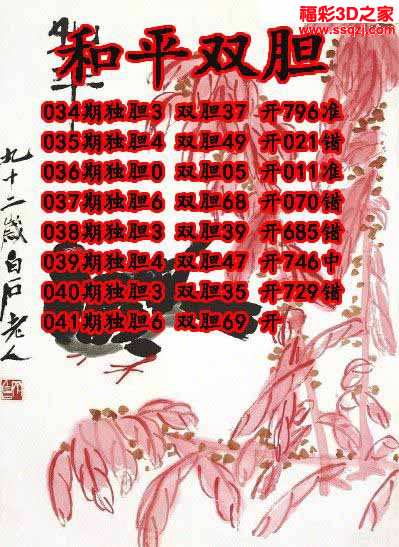 福彩3D之家
www.ssqzj.com
和平双胆
034期独胆3 双胆37 开796准
035期独胆4 双胆49 开021错
036期独胆0 双胆05 开011准
037期独胆6 双胆68 开070错
038期独胆3 双胆39 开685错
039期独胆4 双胆47 开746中
040期独胆3 双胆35 开729错
041期独胆6 双胆69 开
九十二岁白石老人